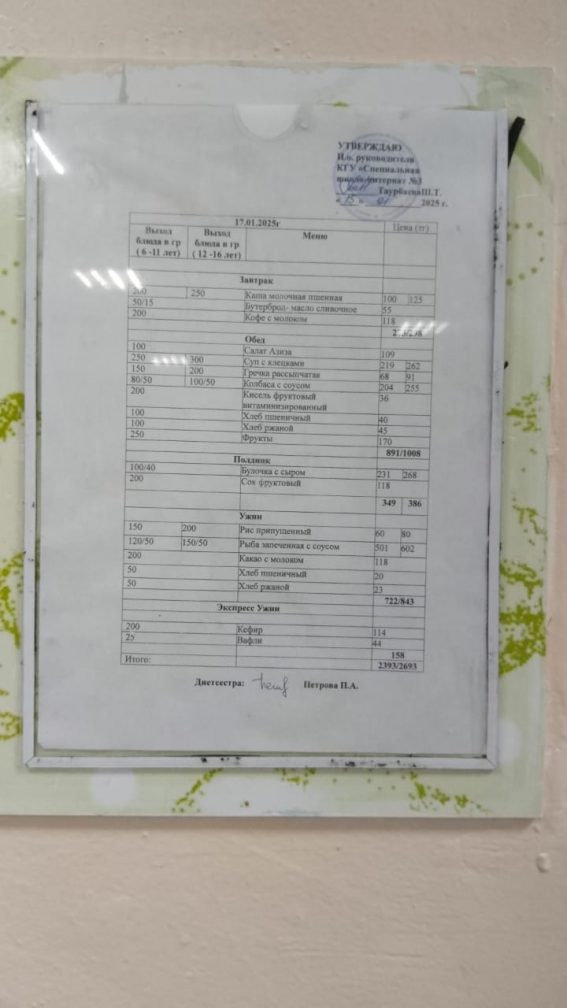 УТВЕРЖДАЮ
И.о. руководителя
КГУ «Специальная
школа-интернат №3
Таурбаева Ш.Т.
« 15 » 01 2025 г.
17.01.2025г
Выход блюда в гр ( 6 -11 лет) Выход блюда в гр ( 12 -16 лет) Меню Цена (тг)
Завтрак
200 250 Каша молочная пшенная 100 125
50/15 Бутерброд- масло сливочное 55
200 Кофе с молоком 118
Обед
100 Салат Азиза 109
250 300 Суп с клецками 219 262
150 200 Гречка рассыпчатая 68 91
80/50 100/50 Колбаса с соусом 204 255
200 Кисель фруктовый 36
витаминизированный
100 Хлеб пшеничный 40
100 Хлеб ржаной 45
250 Фрукты 170
891/1008
Полдник
100/40 Булочка с сыром 231 268
200 Сок фруктовый 118
349 386
Ужин
150 200 Рис припущенный 60 80
120/50 150/50 Рыба запеченная с соусом 501 602
200 Какао с молоком 118
50 Хлеб пшеничный 20
50 Хлеб ржаной 23
722/843
Экспресс Ужин
200 Кефир 114
25 Вафли 44
158
Итого: 2393/2693
Диетсестра: Петрова П.А.